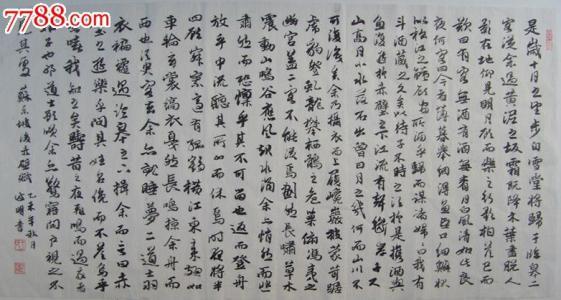 是歲十月之望步自雪堂將歸于臨皋二
客從余過黃泥之坂霜露既降木葉盡脫人
影在地仰見明月顧而樂之行歌相答已而
歎曰有客無酒有酒無肴月白風清如此良
夜何客曰今者薄暮舉網得魚巨口細鱗狀
似松江之鱸顧安所得酒乎歸而謀諸婦婦曰我有
斗酒藏之久矣以待子不時之須於是攜酒與
魚復遊於赤壁之下江流有聲斷岸千尺
山高月小水落石出曾日月之幾何而山川不
可復識矣余乃攝衣而上履巉巖披蒙茸踞
虎豹登虬龍攀棲鶻之危巢俯馮夷之
幽宮蓋二客不能從焉劃然長嘯草木
震動山鳴谷應風起水涌余亦悄然而悲
肅然而恐凜乎其不可留也返而登舟
放乎中流聽其所止而休焉時夜將半
四顧寂寥適有孤鶴橫江東來翅如
車輪玄裳縞衣戛然長鳴掠余舟而
西也須臾客去余亦就睡夢二道士羽
衣翩躚過臨皋之下揖余而言曰赤
壁之遊樂乎問其姓名俛而不答嗚乎
噫嘻我知之矣疇昔之夜飛鳴而過我者
非子也耶道士顧笑余亦驚寤開戶視之不
見其處 蘇東坡後赤壁賦 乙未年秋月 明書